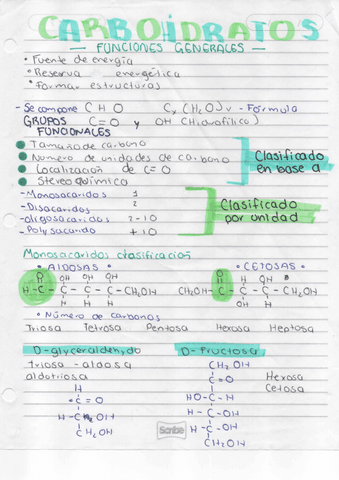 CARBOHIDRATOS
— FUNCIONES GENERALES —
• Fuente de energía
• Reserva energética
• formar estructuras
- Se compone C H O Cx (H2O)y - Fórmula
GRUPOS FUNCIONALES C=O y OH (Hidrofílico)
Tamaño de carbono
Número de unidades de carbono
Localización de C=O
Stereo química
Clasificado en base a
- Monosacaridos 1
- Disacaridos 2
- oligosacaridos 2-10
- Polysacarido +10
Clasificado por unidad
Monosacaridos clasificacion
• ALDOSAS • • CETOSAS •
O OH OH OH O OH OH
H-C-C-C-C-CH2OH CH2OH-C-C-C-CH2OH
H H H H H
• Número de carbonos
Triosa Tetrosa Pentosa Hexosa Heptosa
D-glyceraldehydo D-Fructosa
triosa - aldosa
aldotriosa
H
C=O
H-C-OH
CH2OH
CH2OH
C=O
HO-C-H
H-C-OH
H-C-OH
CH2OH
Hexosa
Cetosa
Scribe